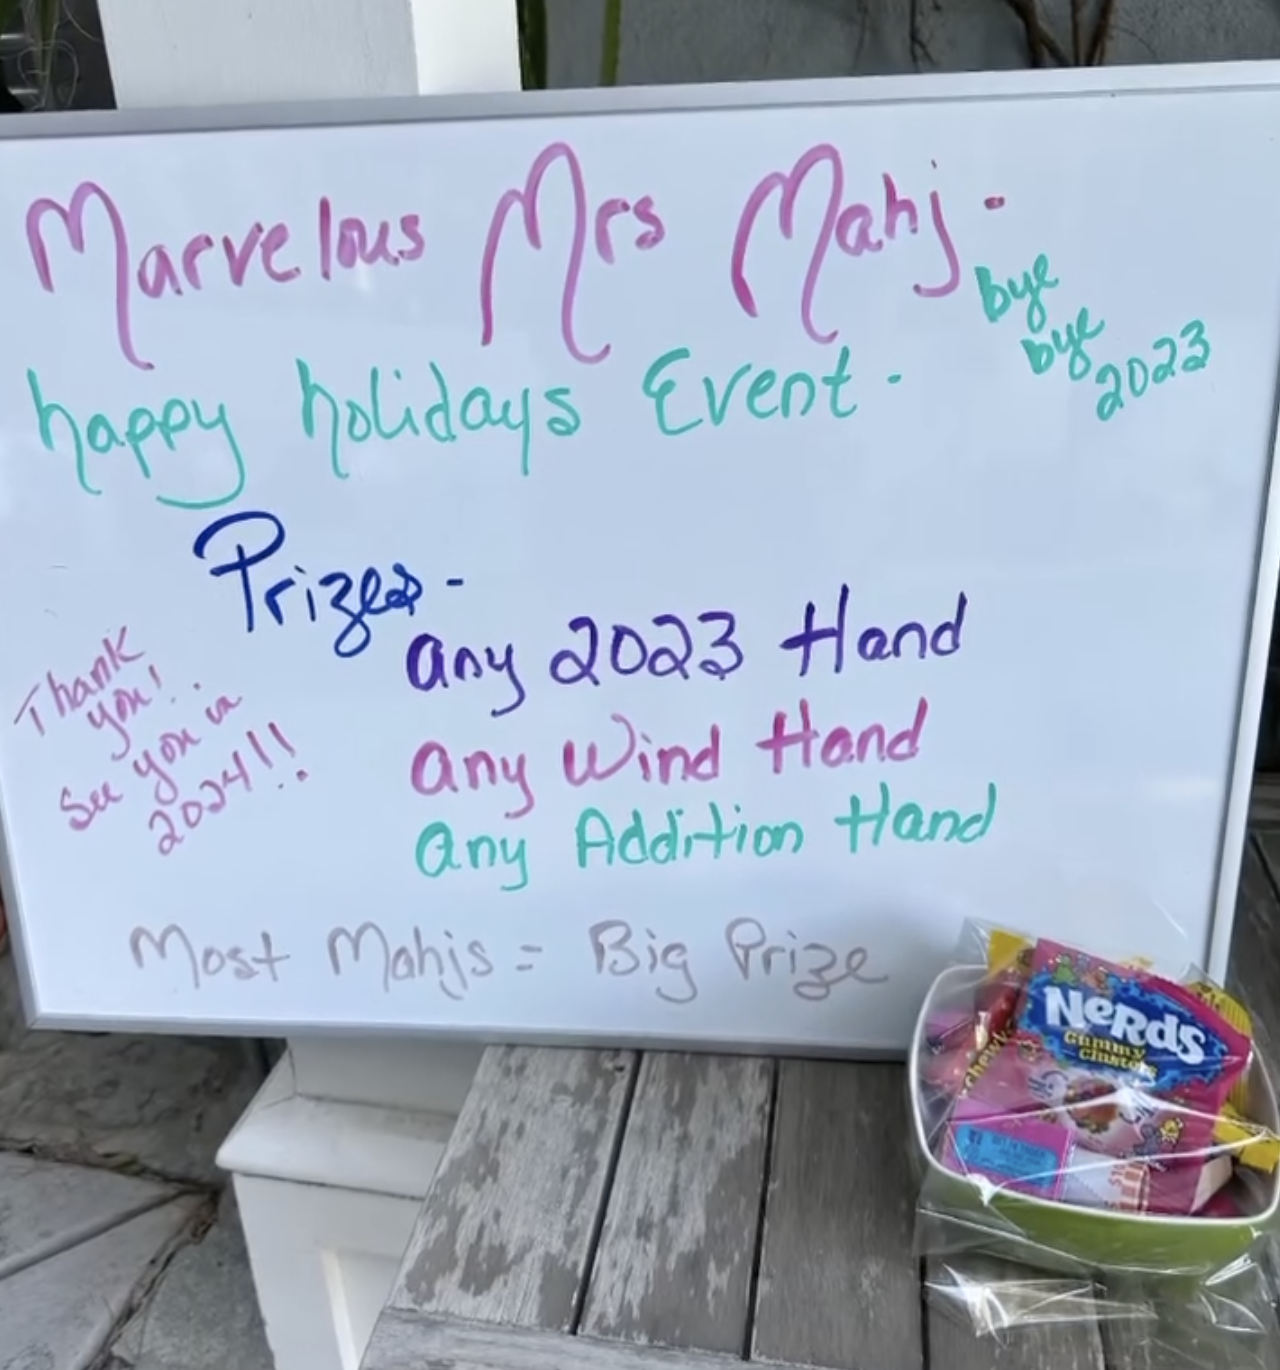 Marvelous Mrs Mahj -
happy holidays Event -
bye
bye
2023
Prizes -
any 2023 Hand
any Wind Hand
any Addition Hand
Thank
you!
See you in
2024!!
Most Mahjs = Big Prize
NeRds
Gummy
Clusters
chewy